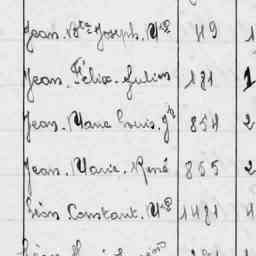 Jean. Bte Joseph. Mie 49 1
Jean. Félix. Julien 181 1
Jean. Marie Louis. 854 2
Jean. Marie. René 855 2
Léon Constant. Mie 1481 4